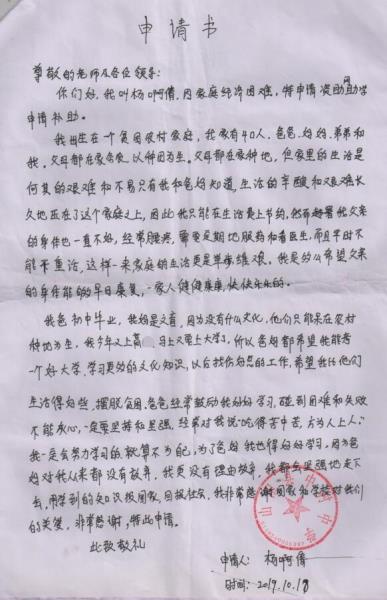 申请书
尊敬的老师及各位领导:
你们好,我叫杨啊倩,因家庭经济困难,特申请资助助学
申请补助。
我出生在一个贫困农村家庭,我家有4口人,爸爸、妈妈、弟弟和
我。父母都在家务农,以种田为生。父母都在家种地,但家里的生活是
何其的艰难和不易只有我和爸妈知道,生活的辛酸和艰难长
久地压在了这个家庭之上,因此我只能在生活费上节约,然而我父亲
的身体也一直不好,经常腰疼,需要定期地服药和看医生,而且平时不
能干重活,这样一来家庭的生活更是举步维艰。我是多么希望父亲
的身体能够早日康复,一家人健健康康,快快乐乐的。
我爸初中毕业,我妈是文盲,因为没有什么文化,他们只能呆在农村
种地为生,我今年又上高 马上又要上大学了,所以爸妈都希望我能考
一个好大学,学习更多的文化知识,以后找份好点的工作,希望我比他们
生活得好些,摆脱贫困,爸爸经常鼓励我好好学习,碰到困难和失败
不能灰心,一定要坚持和坚强,经常对我说:“吃得苦中苦,方为人上人”
我一定会努力学习的,就算不为自己,为了爸妈我也得好好学习,因为爸
妈对我从来都没有放弃,我更没有理由放弃,我都会坚强地走下
去,用学到的知识报国家,回报社会,我非常感谢国家和学校对我们
的关爱,非常感谢,特此申请。
此致敬礼
申请人:杨啊倩
时间:2019.10.18